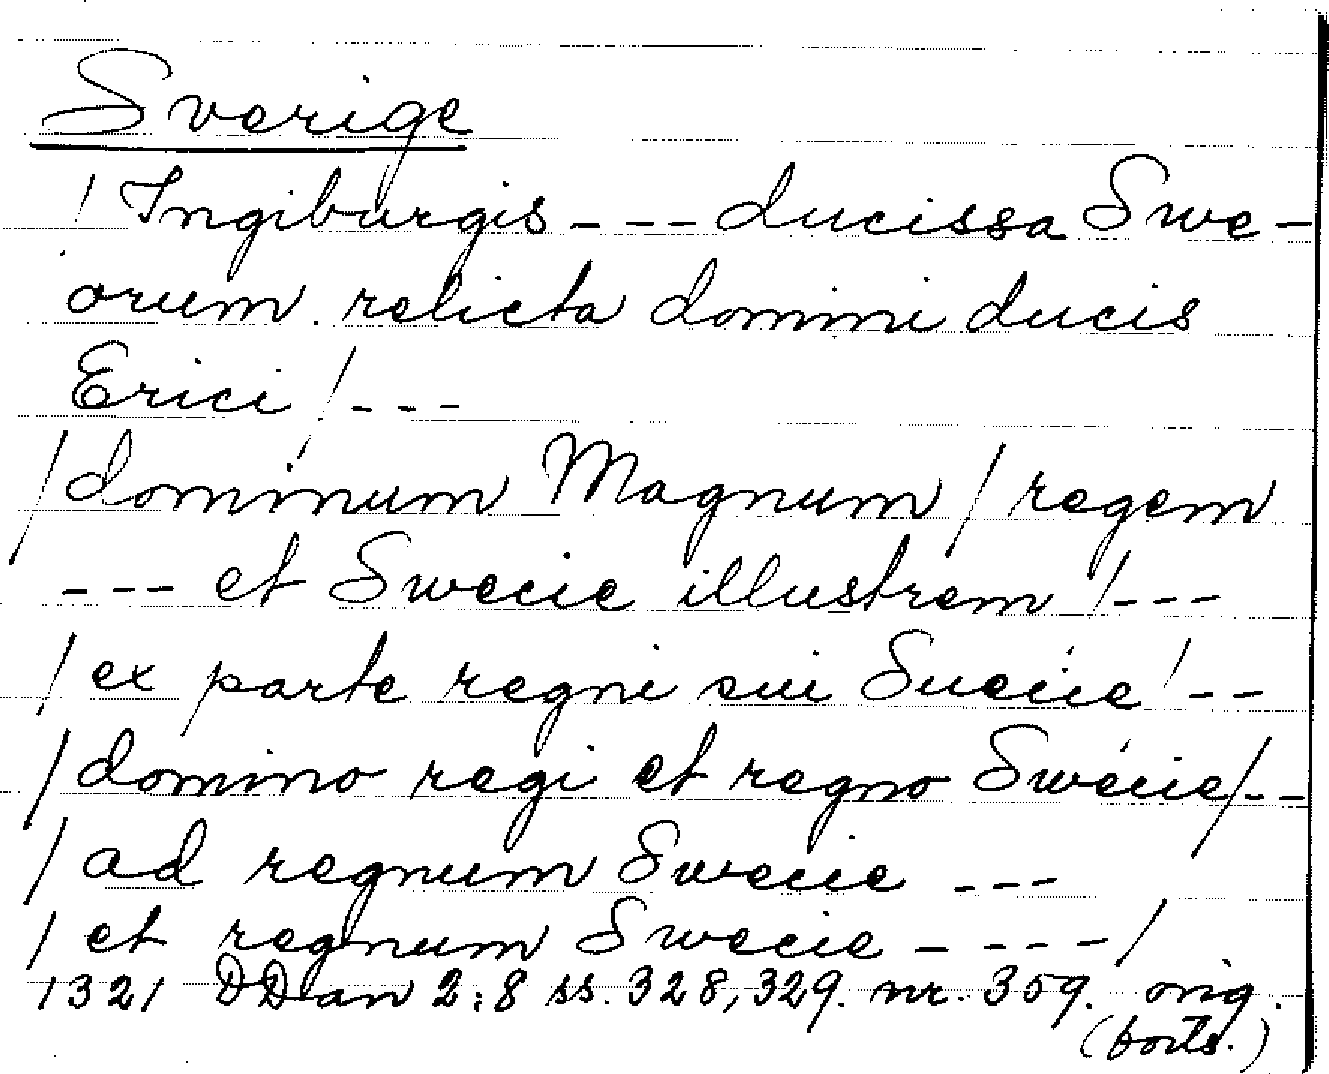 Sverige
/ Ingiburgis --- ducissa Swe-
orum relicta domini ducis
Erici / ---
/ dominum Magnum / regem
--- et Swecie illustrem / ---
/ ex parte regni sui Suecie / --
/ domino regi et regno Swecie / --
/ ad regnum Swecie ---
/ et regnum Swecie ---- /
1321 DDan 2:8 ss. 328, 329. nr. 359. orig.
(forts.)